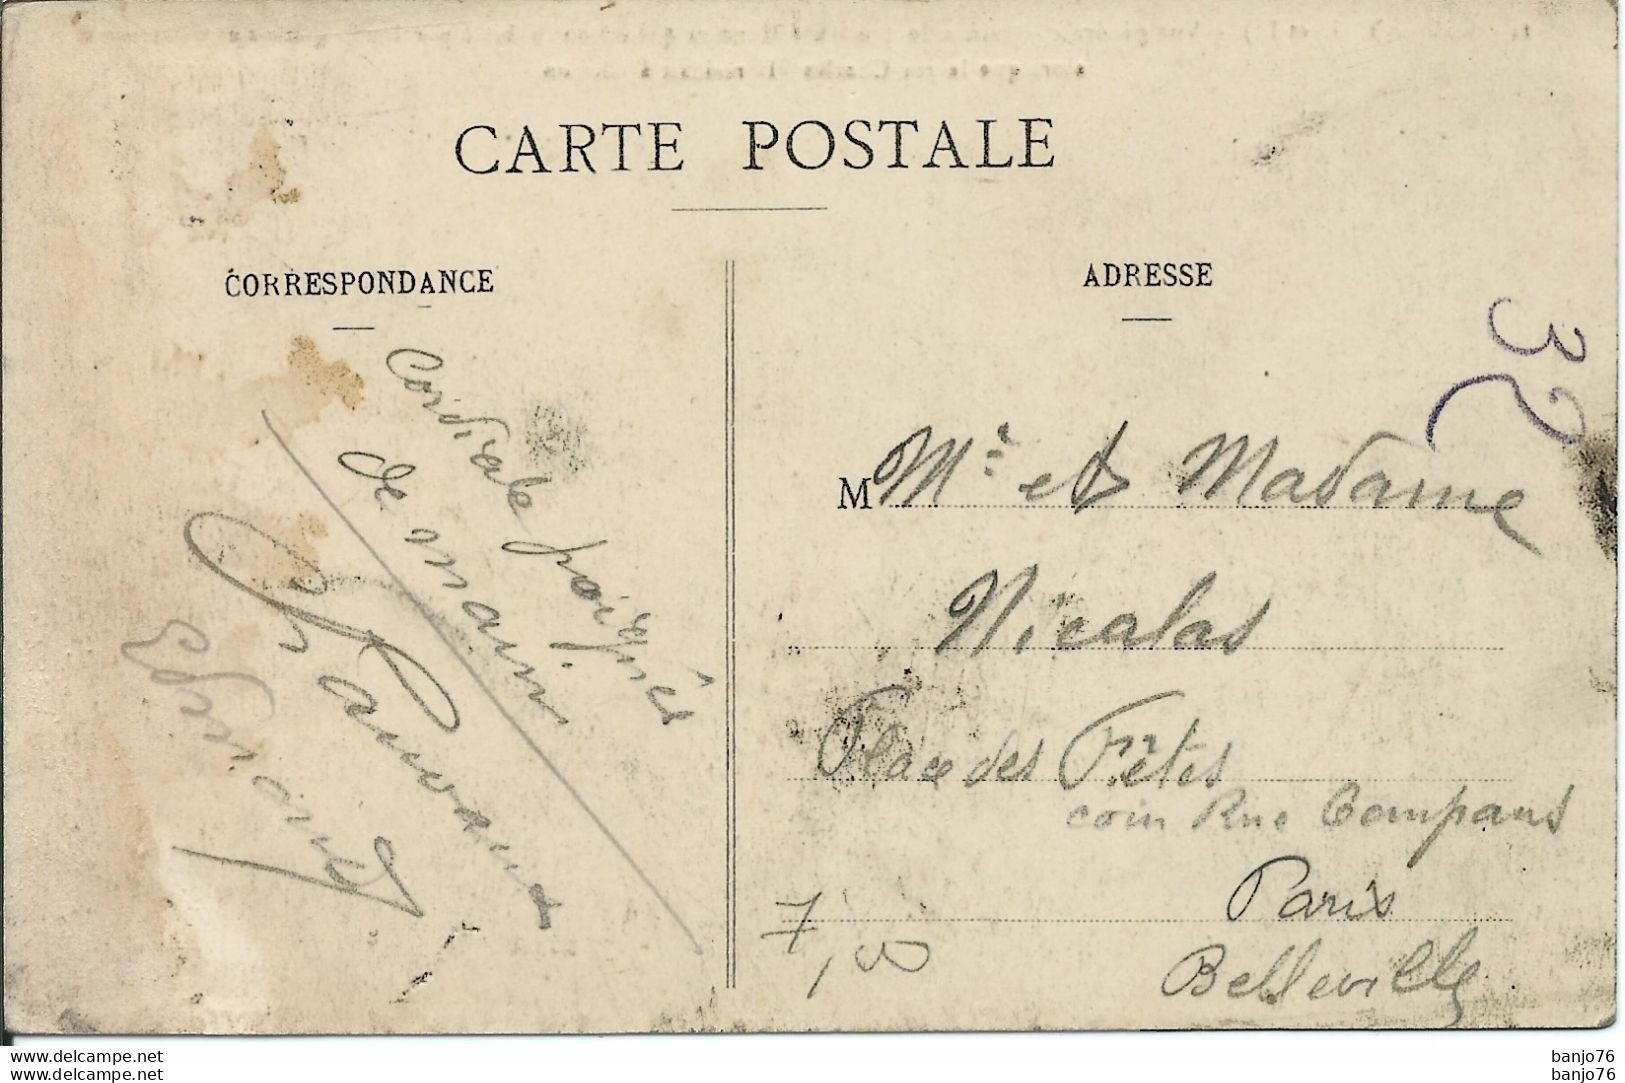 CARTE POSTALE
CORRESPONDANCE
Cordiale poignée
de main
ADRESSE
32
M Mr et Madame
Nicolas
Place des Fêtes
coin Rue Compans
Paris
Belleville
www.delcampe.net
www.delcampe.net
banjo76
banjo76